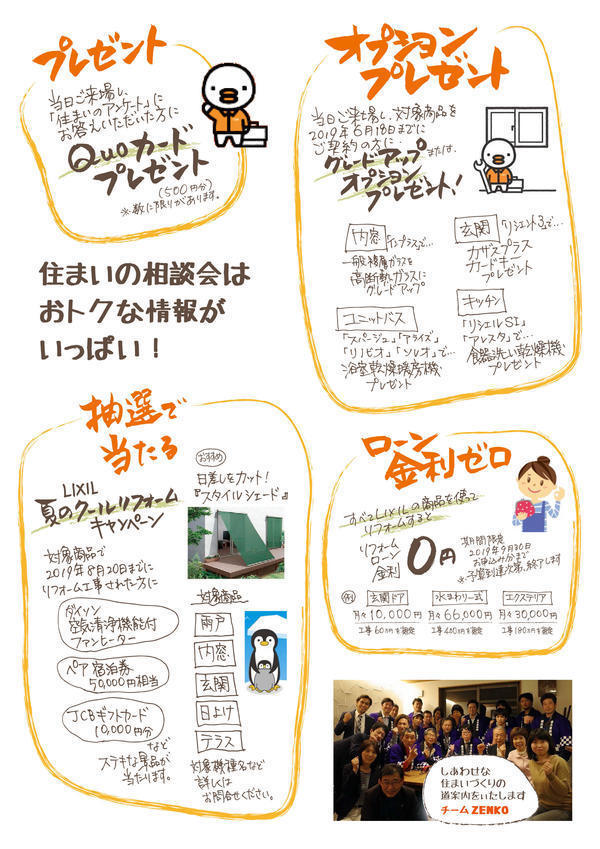 プレゼント
当日ご来場し、
「住まいのアンケート」に
お答えいただいた方に
Quoカード
プレゼント
(500円分)
※数に限りがあります。
オプション
プレゼント
当日ご来場し、対象商品を
2019年6月18日までに
ご契約の方に、
グレードアップまたは、
オプション
プレゼント!
内窓 「インプラス」で…
一般複層ガラスを
高断熱ガラスに
グレードアップ
玄関 「リシェント3」で…
カザスプラス
カードキー
プレゼント
ユニットバス
「スパージュ」「アライズ」
「リノビオ」「ソレオ」で…
浴室乾燥暖房機
プレゼント
キッチン
「リシェルSI」
「アレスタ」で…
食器洗い乾燥機
プレゼント
住まいの相談会は
おトクな情報が
いっぱい!
抽選で
当たる
LIXIL
夏のクールリフォーム
キャンペーン
対象商品で
2019年8月20日までに
リフォーム工事された方に
ダイソン
空気清浄機能付
ファンヒーター
ペア宿泊券
50,000円相当
JCBギフトカード
10,000円分
など
ステキな景品が
当たります。
おすすめ
日差しをカット!
『スタイルシェード』
対象商品
雨戸
内窓
玄関
日よけ
テラス
対象機種名など
詳しくは
お問合せください。
ローン
金利ゼロ
すべてLIXILの商品を使って
リフォームすると
リフォーム
ローン
金利
0円
期間限定
2019年9月30日
お申込み分まで
※予算到達次第、終了します
例
玄関ドア
月々10,000円
工事60万円を想定
水まわり一式
月々66,000円
工事400万円を想定
エクステリア
月々30,000円
工事180万円を想定
しあわせな
住まいづくりの
道案内をいたします
チームZENKO